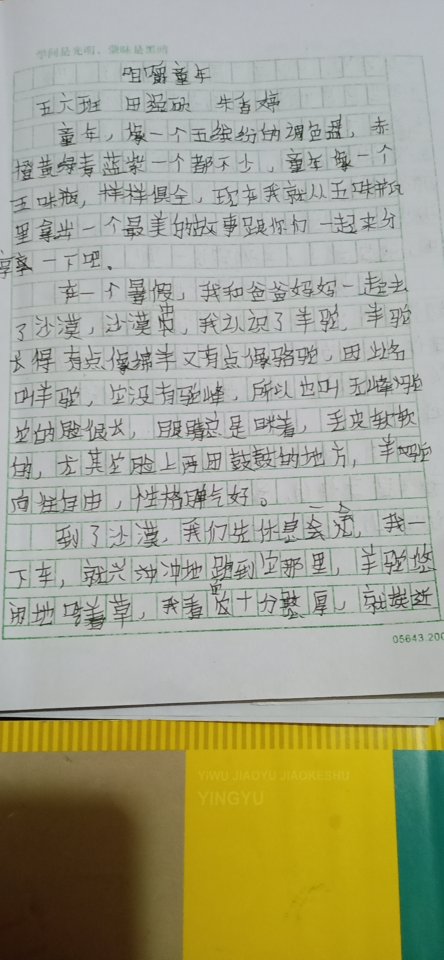 学问是光明，蒙昧是黑暗
咀嚼童年
五六班 田 朱香婷
童年，像一个五缤纷的调色盘，赤
橙黄绿青蓝紫一个都不少，童年像一个
五味瓶，样样俱全，现在我就从五味瓶
里拿出一个最美的故事跟你们一起来分
享一下吧。
在一个暑假，我和爸爸妈妈一起去
了沙漠，沙漠中，我认识了羊驼，羊驼
长得有点像绵羊又有点像骆驼，因此名
叫羊驼，它没有驼峰，所以也叫无峰驼
它的脸很长，眼睛总是眯着，毛皮软软
的，尤其它脸上两团鼓鼓的地方，羊驼
向往自由，性格脾气好。
到了沙漠，我们先休息一会儿，我一
下车，就兴冲冲地跑到它那里，羊驼悠
闲地吃着草，我看它皮十分憨厚，就挨近
05643.200
YIWU JIAOYU JIAOKESHU
YINGYU